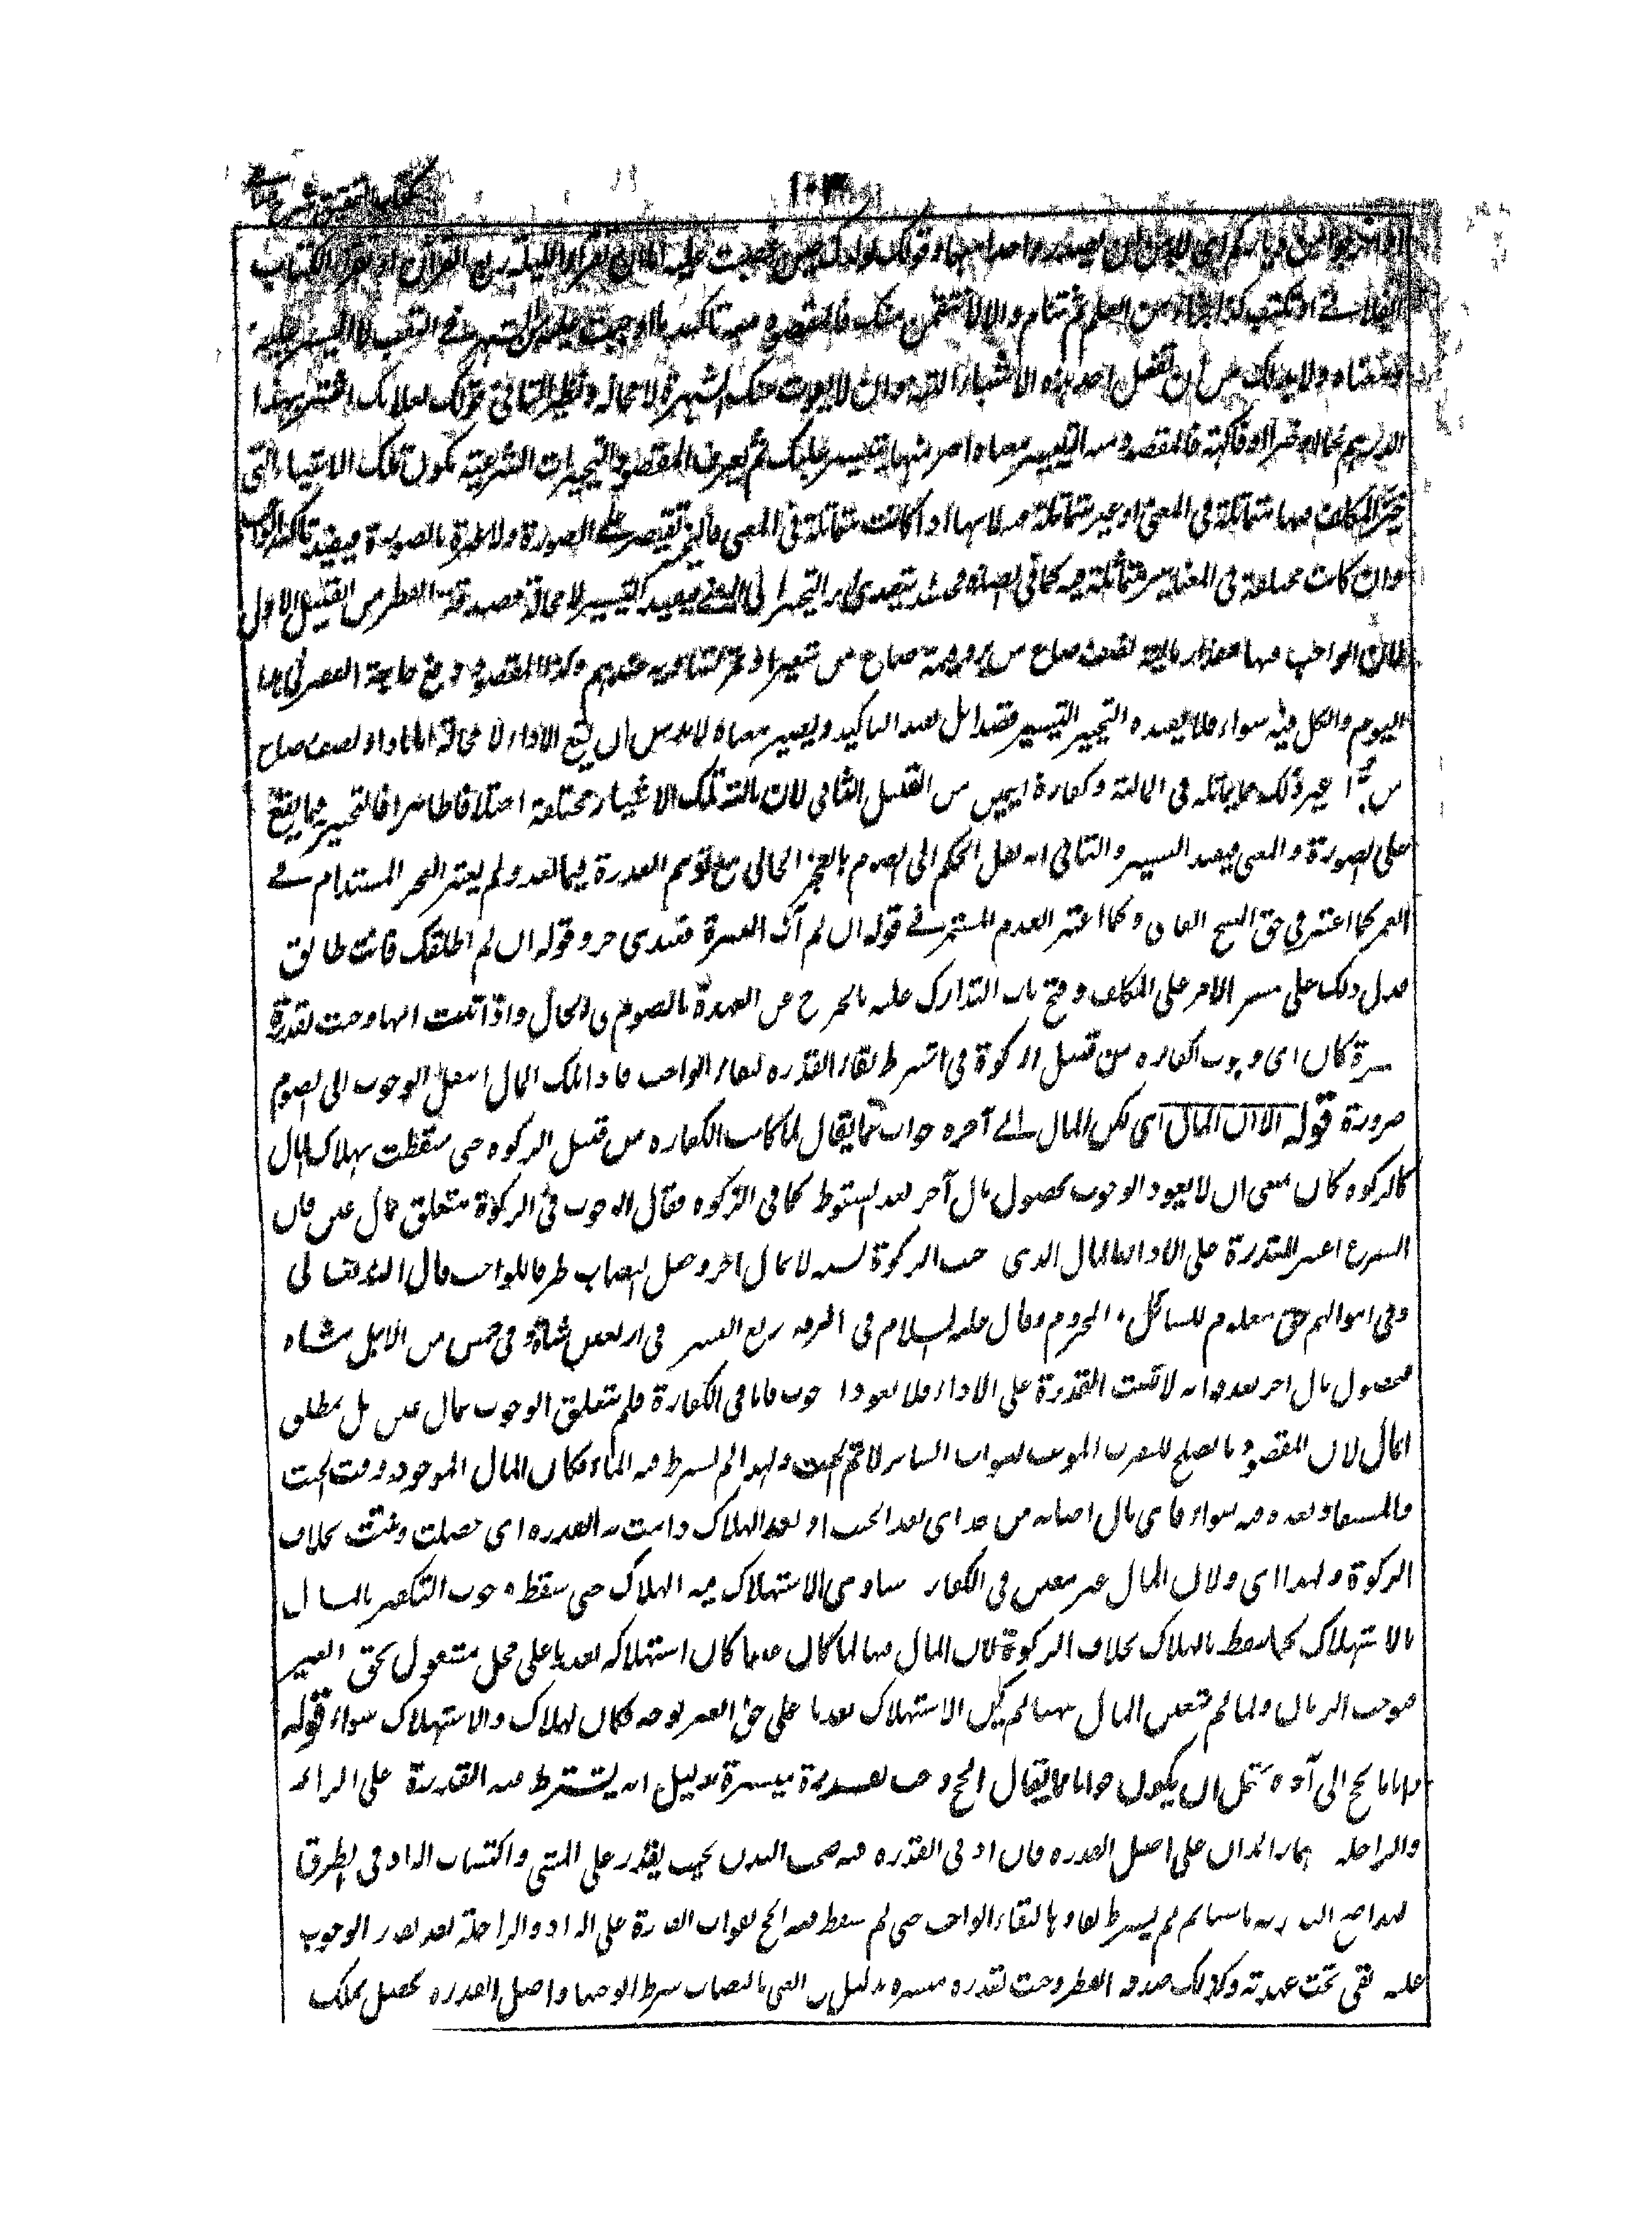 كتاب التحقيق شرح حسامي
١٠٣
او اخرجوا من دياركم اي لابد من ان يصدر واحد منها وقولك لولدك حين غضبت عليه اما ان تقرأ الليلة ربع القرآن او تقرأ الكتاب
الفلاني او تكتب كذا جزأ من العلم ثم تنام والا لانتقمن منك فالمقصود منه تاكيد ما اوجبت عليه من السهر في التعب لا التيسير عليه
فمعناه ولابد لك من ان تفعل احد هذه الاشياء البتة وان لا يفوت منك السهر لا محالة ونظير الثاني قولك لغلامك اشتر بهذا
الدرهم لحما او خبزا او فاكهة فالمقصود منه التيسير معناه اختر منها ما تيسر عليك ثم يعرف المقصود في التخييرات الشرعية بكون تلك الاشياء التي
خير المكلف فيها متماثلة في المعنى او غير متماثلة فيه لانها اذا كانت متماثلة في المعنى فالتخيير يقتصر على الصورة ولا عبرة بالصورة فيفيد تاكد الواجب
وان كانت مختلفة في المعنى غير متماثلة فيه كما في الكفارة فحينئذ يتعدى اثر التخيير الى المعنى فيفيد التيسير لا محالة فصدقة الفطر من القبيل الاول
لان الواجب فيها مقدار مالية نصف صاع من بر وقيمة صاع من شعير او تمر متساوية عندهم وكذا المقصود دفع حاجة الفقير في هذا
اليوم والكل فيه سواء فلا يفيد التخيير التيسير قصدا بل يفيد التاكيد ويصير معناه لابد من ان يقع الاداء لا محالة اما اداء نصف صاع
من بر او غير ذلك مما يماثله في المالية وكفارة اليمين من القبيل الثاني لان مالية تلك الاشياء مختلفة اختلافا ظاهرا فالتخيير فيها يقع
على الصورة والمعنى فيفيد التيسير والثاني انه نقل الحكم الى الصوم بالعجز الحالي مع توهم القدرة فيما بعد ولم يعتبر العجز المستدام في
العمر كما اعتبر في حق الشيخ الفاني وكما اعتبر العدم المستمر في قوله ان لم آت البصرة فعبدي حر وقوله ان لم اطلقك فانت طالق
فدل ذلك على تيسير الامر على المكلف وفتح باب التدارك عليه بالخروج عن العهدة بالصوم في الحال واذا ثبت انها وجبت بقدرة
ميسرة كان اي وجوب الكفارة من قبيل الزكوة في اشتراط بقاء القدرة لبقاء الواجب فاذا هلك المال انتقل الوجوب الى الصوم
ضرورة قوله الا ان المال اي لكن المال الى آخره جواب عما يقال لما كانت الكفارة من قبيل الزكوة حتى سقطت بهلاك المال
كالزكوة كان ينبغي ان لا يعود الوجوب بحصول مال آخر بعد السقوط كما في الزكوة فقال الوجوب في الزكوة متعلق بمال عين فان
الشرع اعتبر القدرة على الاداء بالمال الذي وجبت الزكوة بسببه لا بمال آخر وجعل النصاب ظرفا للواجب قال الله تعالى
وفي اموالهم حق معلوم للسائل والمحروم وقال عليه السلام في الرقة ربع العشر في اربعين شاة شاة وفي خمس من الابل شاة
فبحصول مال اخر بعد فواته لا تثبت القدرة على الاداء فلا يعود الوجوب فاما في الكفارة فلم يتعلق الوجوب بمال عين بل بمطلق
المال لان المقصود ما يصلح للتقرب الموجب للثواب الساتر لاثم الحنث ولهذا لم يشترط فيه النماء فكان المال الموجود وقت الحنث
والمستفاد بعده فيه سواء فاي مال اصابه من بعد اي بعد الحنث او بعد الهلاك دامت به القدرة اي حصلت وثبتت بخلاف
الزكوة ولهذا اي ولان المال غير معين في الكفارة ساوى الاستهلاك فيه الهلاك حتى سقط وجوب التكفير بالمال
بالاستهلاك كما يسقط بالهلاك بخلاف الزكوة لان المال فيها لما كان معينا كان استهلاكه تعديا على محل مشغول بحق الغير
فوجب الضمان ولما لم يتعين المال ههنا لم يكن الاستهلاك تعديا على حق الغير بوجه فكان الهلاك والاستهلاك سواء قوله
واما الحج الى آخره يحتمل ان يكون جوابا عما يقال الحج وجب بقدرة ميسرة بدليل انه يشترط فيه القدرة على الزاد
والراحلة وهما زائدان على اصل القدرة فان ادنى القدرة فيه صحة البدن بحيث يقدر على المشي واكتساب الزاد في الطريق
ثم لم يشترط بقاؤها لبقاء الواجب حتى لم يسقط عنه الحج بفوات القدرة على الزاد والراحلة بعد تقرر الوجوب
عليه بقى تحت عهدته وكذلك صدقة الفطر وجبت بقدرة ميسرة بدليل ان الغنى بالنصاب شرط لوجوبها واصل القدرة يحصل بملك